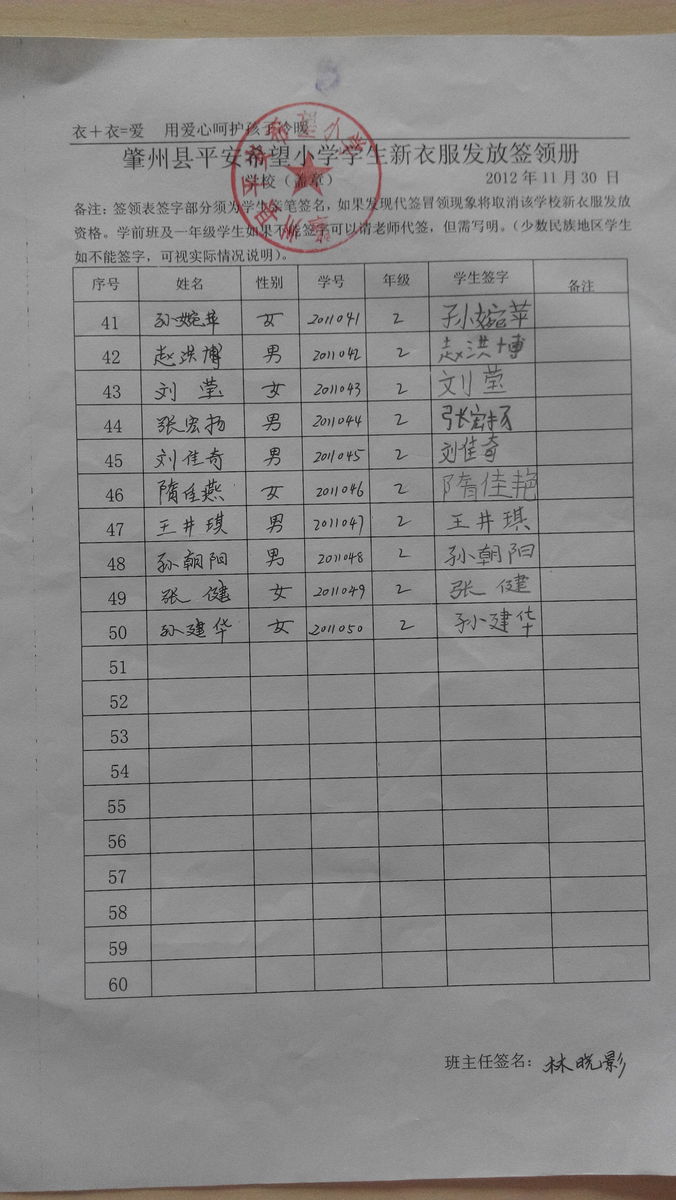 衣+衣=爱 用爱心呵护孩子冷暖
肇州县平安希望小学学生新衣服发放签领册
学校（盖章） 2012 年 11 月 30 日
备注：签领表签字部分须为学生亲笔签名，如果发现代签冒领现象将取消该学校新衣服发放
资格。学前班及一年级学生如果不能签字可以请老师代签，但需写明。（少数民族地区学生
如不能签字，可视实际情况说明）。
序号 姓名 性别 学号 年级 学生签字 备注
41 孙婉苹 女 2011041 2 孙婉苹
42 赵洪博 男 2011042 2 赵洪博
43 刘莹 女 2011043 2 刘莹
44 张宏扬 男 2011044 2 张宏扬
45 刘佳奇 男 2011045 2 刘佳奇
46 隋佳燕 女 2011046 2 隋佳艳
47 王井琪 男 2011047 2 王井琪
48 孙朝阳 男 2011048 2 孙朝阳
49 张健 女 2011049 2 张健
50 孙建华 女 2011050 2 孙建华
51
52
53
54
55
56
57
58
59
60
班主任签名：林晓影